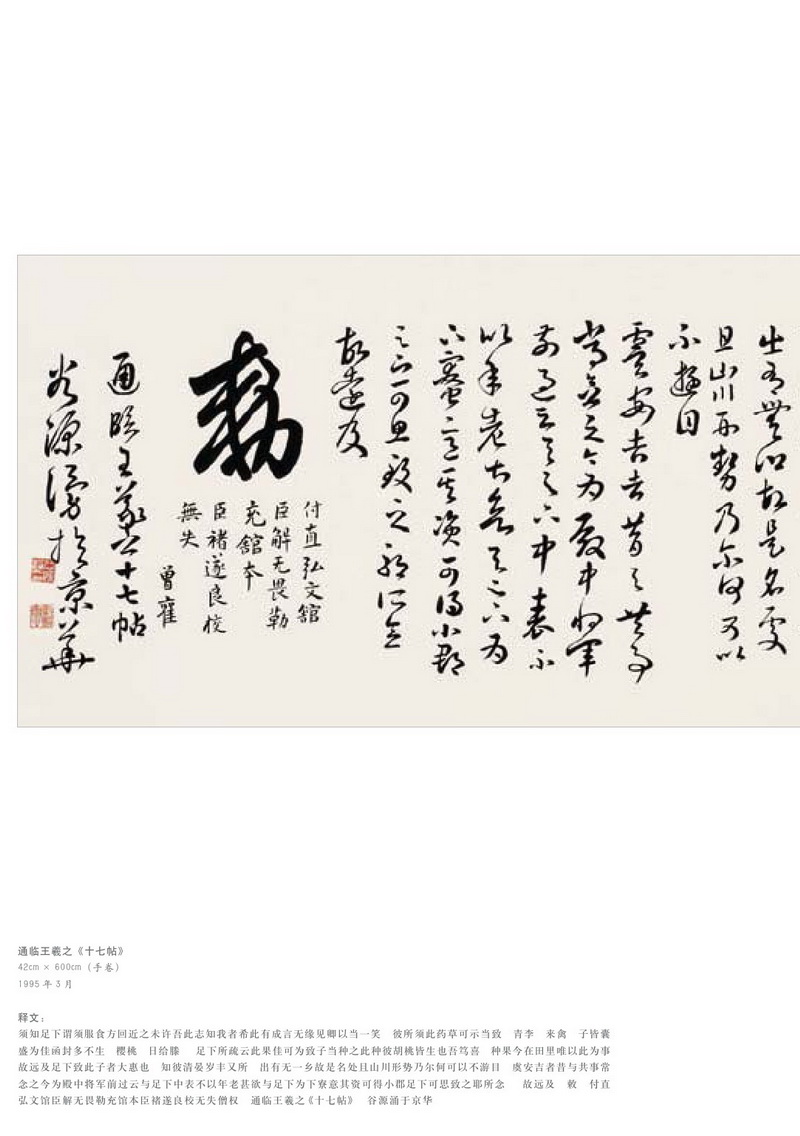 出有無一鄉故是名處
且山川形勢乃尔何可以
不遊目
虞安吉者昔與共事
常念之今為殿中將軍
前過云與足下中表不
以年老甚欲與足下為
下寮意其資可得小郡
足下可思致之耶所念
故遠及
敕
付直弘文館
臣解无畏勒
充館本
臣褚遂良校
無失
通臨王羲之十七帖
谷源湧於京華
通临王羲之《十七帖》
42cm × 600cm（手卷）
1995 年 3 月
释文：
须知足下谓须服食方回近之未许吾此志知我者希此有成言无缘见卿以当一笑　彼所须此药草可示当致　青李　来禽　子皆囊
盛为佳函封多不生　樱桃　日给滕　足下所疏云此果佳可为致子当种之此种彼胡桃皆生也吾笃喜　种果今在田里唯以此为事
故远及足下致此子者大惠也　知彼清晏岁丰又所　出有无一乡故是名处且山川形势乃尔何可以不游目　虞安吉者昔与共事常
念之今为殿中将军前过云与足下中表不以年老甚欲与足下为下寮意其资可得小郡足下可思致之耶所念　故远及　敕　付直
弘文馆臣解无畏勒充馆本臣褚遂良校无失僧权　通临王羲之《十七帖》　谷源涌于京华